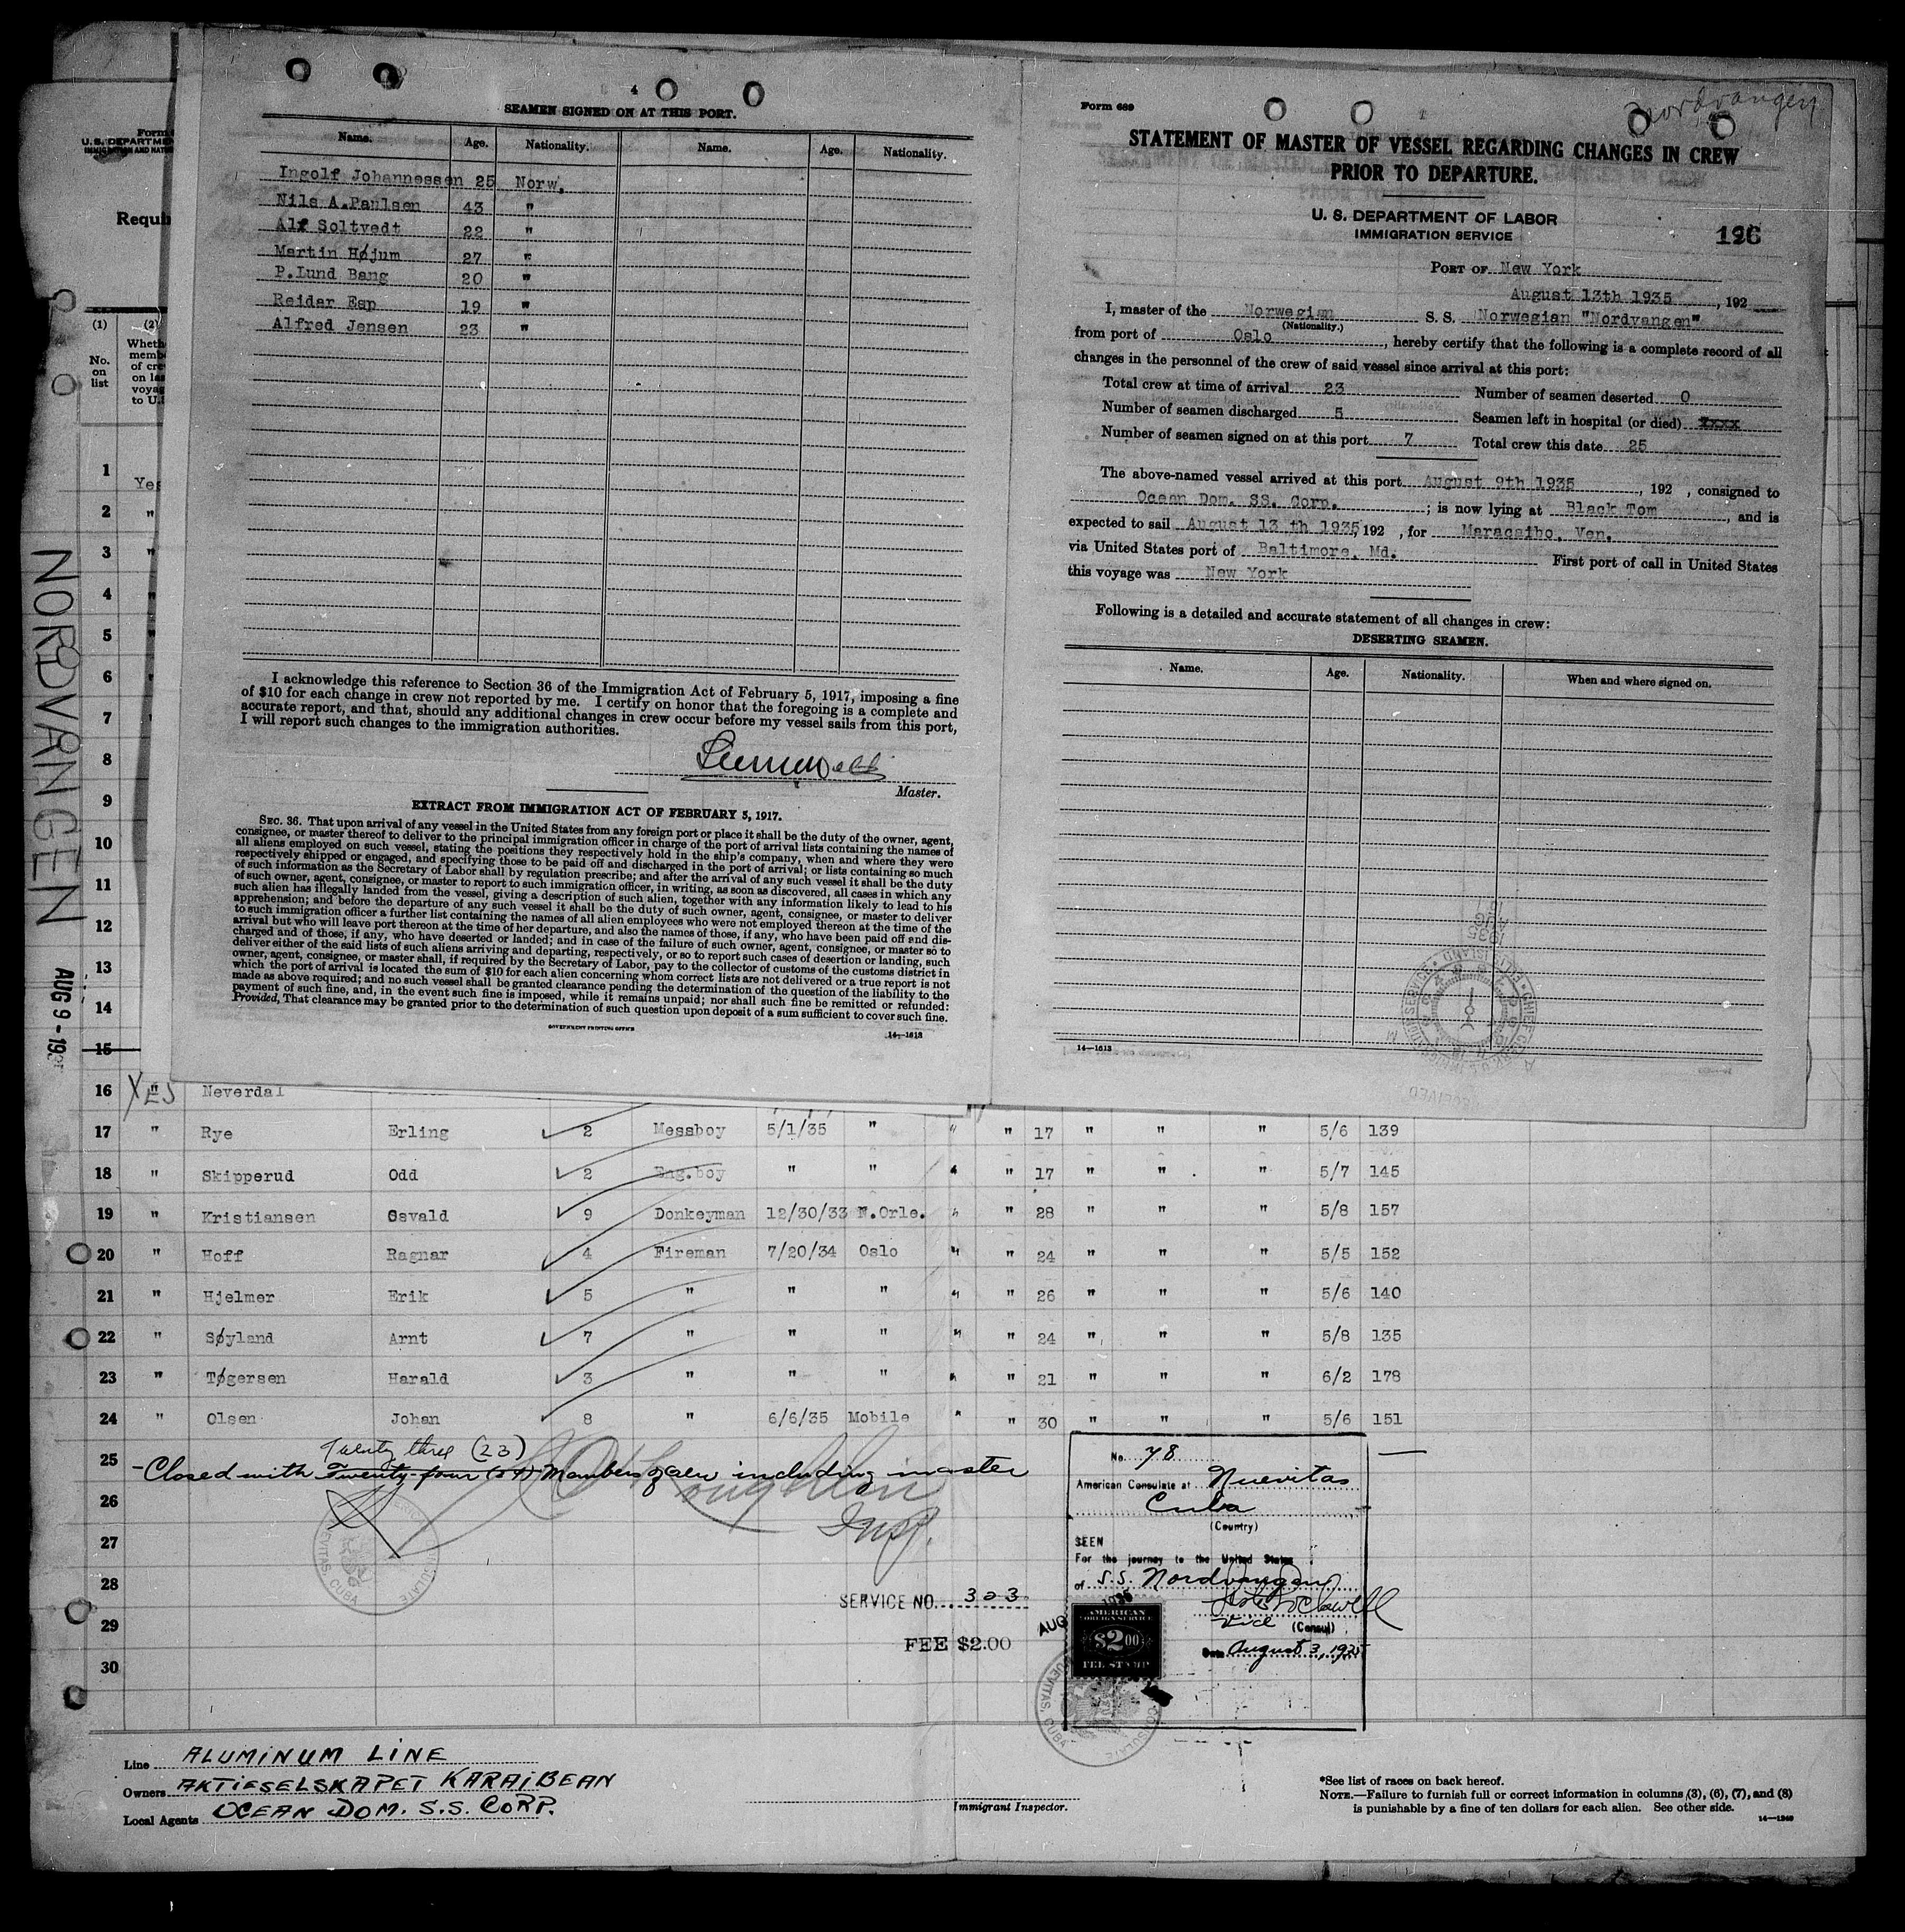 4
SEAMEN SIGNED ON AT THIS PORT.
Name. Age. Nationality. Name. Age. Nationality.
Ingolf Johannessen 25 Norw.
Nils A.Paulsen 43 "
Alf Soltvedt 22 "
Martin Højum 27 "
P.Lund Bang 20 "
Reidar Esp 19 "
Alfred Jensen 23 "
I acknowledge this reference to Section 36 of the Immigration Act of February 5, 1917, imposing a fine
of $10 for each change in crew not reported by me. I certify on honor that the foregoing is a complete and
accurate report, and that, should any additional changes in crew occur before my vessel sails from this port,
I will report such changes to the immigration authorities.
Master.
EXTRACT FROM IMMIGRATION ACT OF FEBRUARY 5, 1917.
SEC. 36. That upon arrival of any vessel in the United States from any foreign port or place it shall be the duty of the owner, agent,
consignee, or master thereof to deliver to the principal immigration officer in charge of the port of arrival lists containing the names of
all aliens employed on such vessel, stating the positions they respectively hold in the ship's company, when and where they were
respectively shipped or engaged, and specifying those to be paid off and discharged in the port of arrival; or lists containing so much
of such information as the Secretary of Labor shall by regulation prescribe; and after the arrival of any such vessel it shall be the duty
of such owner, agent, consignee, or master to report to such immigration officer, in writing, as soon as discovered, all cases in which any
such alien has illegally landed from the vessel, giving a description of such alien, together with any information likely to lead to his
apprehension; and before the departure of any such vessel it shall be the duty of such owner, agent, consignee, or master to deliver
to such immigration officer a further list containing the names of all alien employees who were not employed thereon at the time of the
arrival but who will leave port thereon at the time of her departure, and also the names of those, if any, who have been paid off and dis-
charged and of those, if any, who have deserted or landed; and in case of the failure of such owner, agent, consignee, or master so to
deliver either of the said lists of such aliens arriving and departing, respectively, or so to report such cases of desertion or landing, such
owner, agent, consignee, or master shall, if required by the Secretary of Labor, pay to the collector of customs of the customs district in
which the port of arrival is located the sum of $10 for each alien concerning whom correct lists are not delivered or a true report is not
made as above required; and no such vessel shall be granted clearance pending the determination of the question of the liability to the
payment of such fine, and, in the event such fine is imposed, while it remains unpaid; nor shall such fine be remitted or refunded:
Provided, That clearance may be granted prior to the determination of such question upon deposit of a sum sufficient to cover such fine.
GOVERNMENT PRINTING OFFICE 14—1613
Form 689 Nordvangen
STATEMENT OF MASTER OF VESSEL REGARDING CHANGES IN CREW
PRIOR TO DEPARTURE.
U. S. DEPARTMENT OF LABOR
IMMIGRATION SERVICE
PORT OF New York
August 13th 1935, 192
I, master of the Norwegian S. S. Norwegian "Nordvangen"
(Nationality.)
from port of Oslo, hereby certify that the following is a complete record of all
changes in the personnel of the crew of said vessel since arrival at this port:
Total crew at time of arrival 23 Number of seamen deserted 0
Number of seamen discharged 5 Seamen left in hospital (or died) xxxx
Number of seamen signed on at this port 7 Total crew this date 25
The above-named vessel arrived at this port August 9th 1935, 192 , consigned to
Ocean Dom. SS. Corp. ; is now lying at Black Tom, and is
expected to sail August 13 th 1935, 192 , for Maracaibo, Ven.
via United States port of Baltimore, Md. First port of call in United States
this voyage was New York
Following is a detailed and accurate statement of all changes in crew:
DESERTING SEAMEN.
Name. Age. Nationality. When and where signed on.
14—1613
Form
U. S. DEPARTMEN
Requir
(1) (2)
No. on list
Wheth
memb
of cre
on las
voyag
to U.
1 Yes
2 "
3 "
4 "
5 "
6 "
7 "
8
9
10
11
12
13
14
15
NORDVANGEN
AUG 9 - 193
16 YES Neverdal
17 " Rye Erling 2 Messboy 5/1/35 " " " 17 " " " 5/6 139
18 " Skipperud Odd 2 Eng.boy " " " " 17 " " " 5/7 145
19 " Kristiansen Osvald 9 Donkeyman 12/30/33 N.Orle. " " 28 " " " 5/8 157
20 " Hoff Ragnar 4 Fireman 7/20/34 Oslo " " 24 " " " 5/5 152
21 " Hjelmer Erik 5 " " " " " 26 " " " 5/6 140
22 " Søyland Arnt 7 " " " " " 24 " " " 5/8 135
23 " Tøgersen Harald 3 " " " " " 21 " " " 6/2 178
24 " Olsen Johan 8 " 6/6/35 Mobile " " 30 " " " 5/6 151
Twenty three (23)
25 -Closed with Twenty-four (24) Members of crew including master
26
Insp.
27
28
29
30
SERVICE NO. 323
FEE $2.00
No. 78
American Consulate at Nuevitas
Cuba
(Country)
SEEN
For the journey to the United States
of S.S. Nordvangen
Vice (Consul)
Date August 3, 1935
AUG 1935
AMERICAN
FOREIGN SERVICE
$2.00
FEE STAMP
NUEVITAS, CUBA
CONSULATE
Line ALUMINUM LINE
Owners AKTIESELSKAPET KARAIBEAN
Local Agents OCEAN DOM. S.S. CORP.
Immigrant Inspector.
*See list of races on back hereof.
NOTE.—Failure to furnish full or correct information in columns (3), (6), (7), and (8)
is punishable by a fine of ten dollars for each alien. See other side.
14—1240